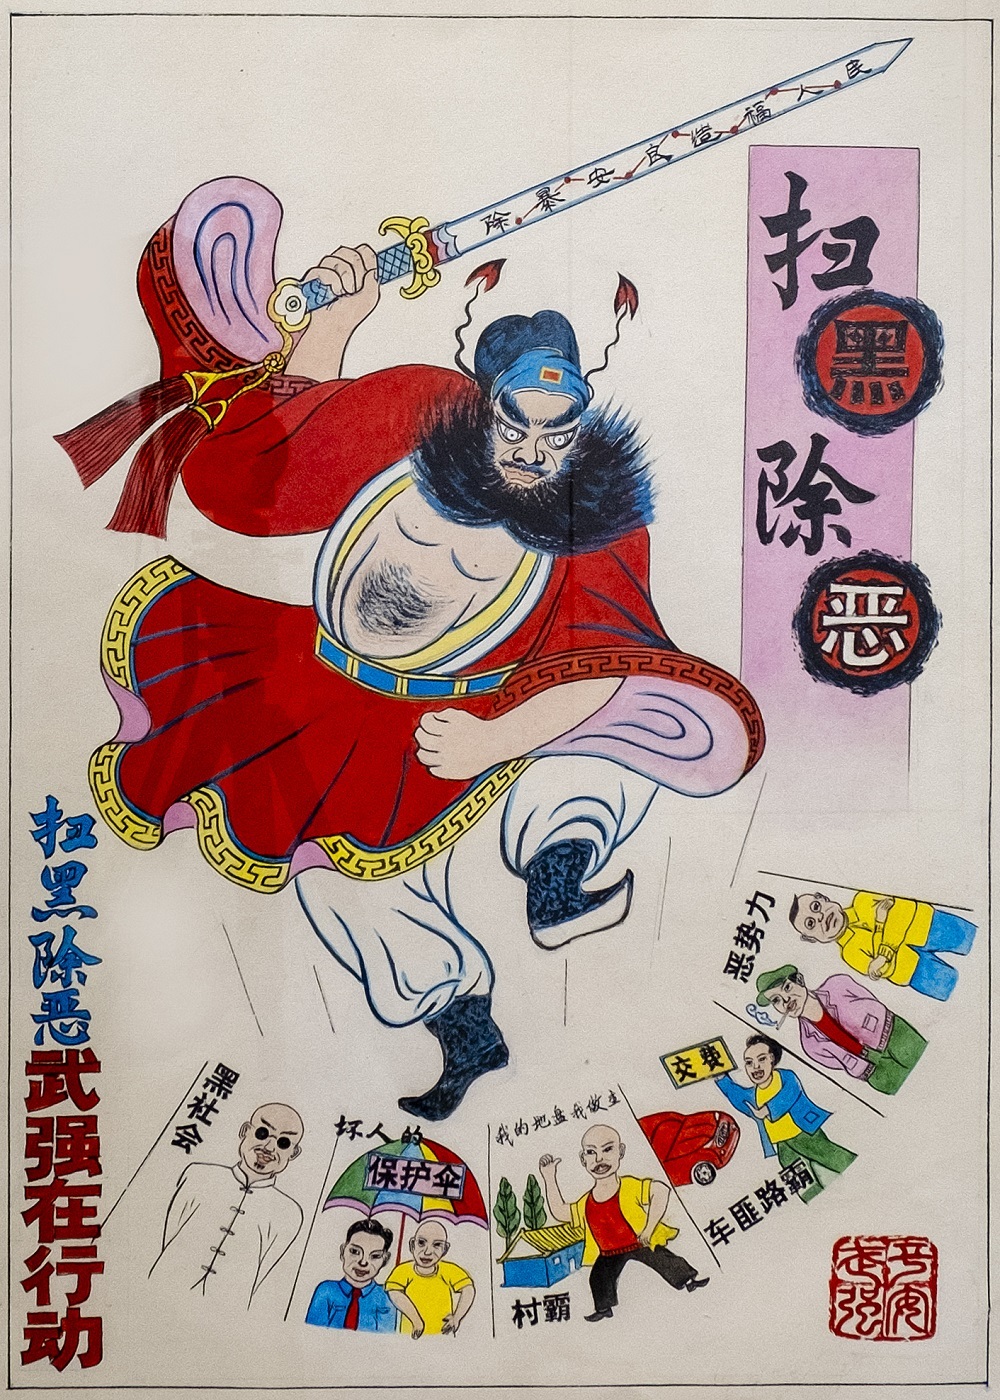 除暴安良造福人民
扫黑除恶
扫黑除恶
武强在行动
黑社会
坏人的
保护伞
我的地盘我做主
村霸
交费
车匪路霸
恶势力